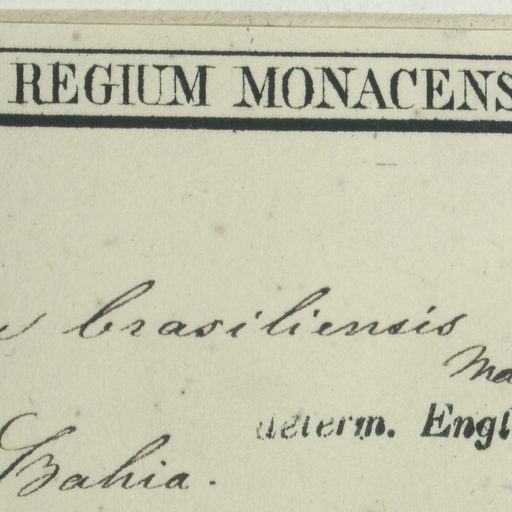 REGIUM MONACENS
brasiliensis
Ma
determ. Engl
Bahia.